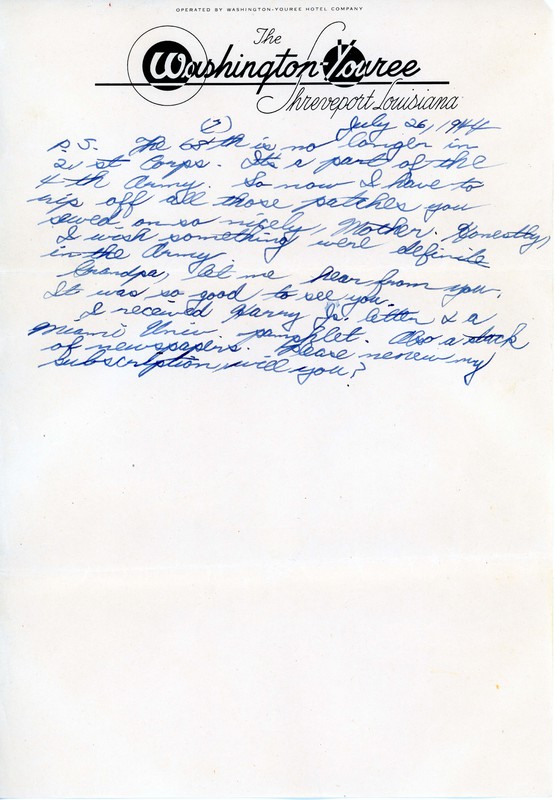 OPERATED BY WASHINGTON-YOUREE HOTEL COMPANY
The
Washington-Youree
Shreveport Louisiana
(3) July 26, 1944
P.S. The 68th is no longer in
21st Corps. It's a part of the
4th Army. So now I have to
rip off all those patches you
sewed on so nicely, Mother. Honestly,
I wish something were definite
in the Army.
Grandpa, let me hear from you.
It was so good to see you.
I received Harry Jr's. letter & a
Miami Univ pamphlet. Also a stack
of newspapers. Please renew my
subscription, will you?